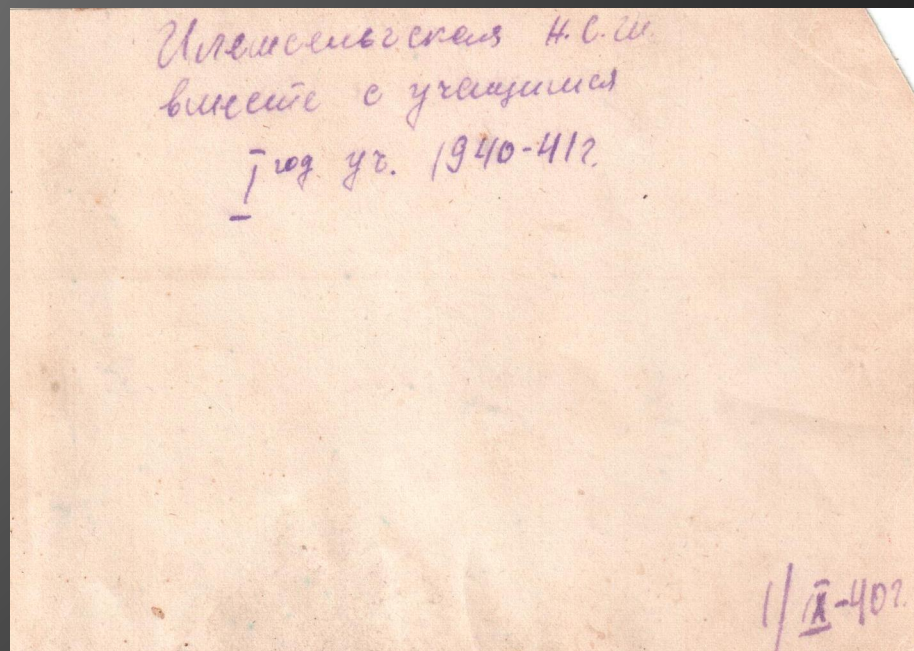 Илемсельгская Н.С.Ш
вместе с учащимися
I год уч. 1940-41г.
1/IX-40г.